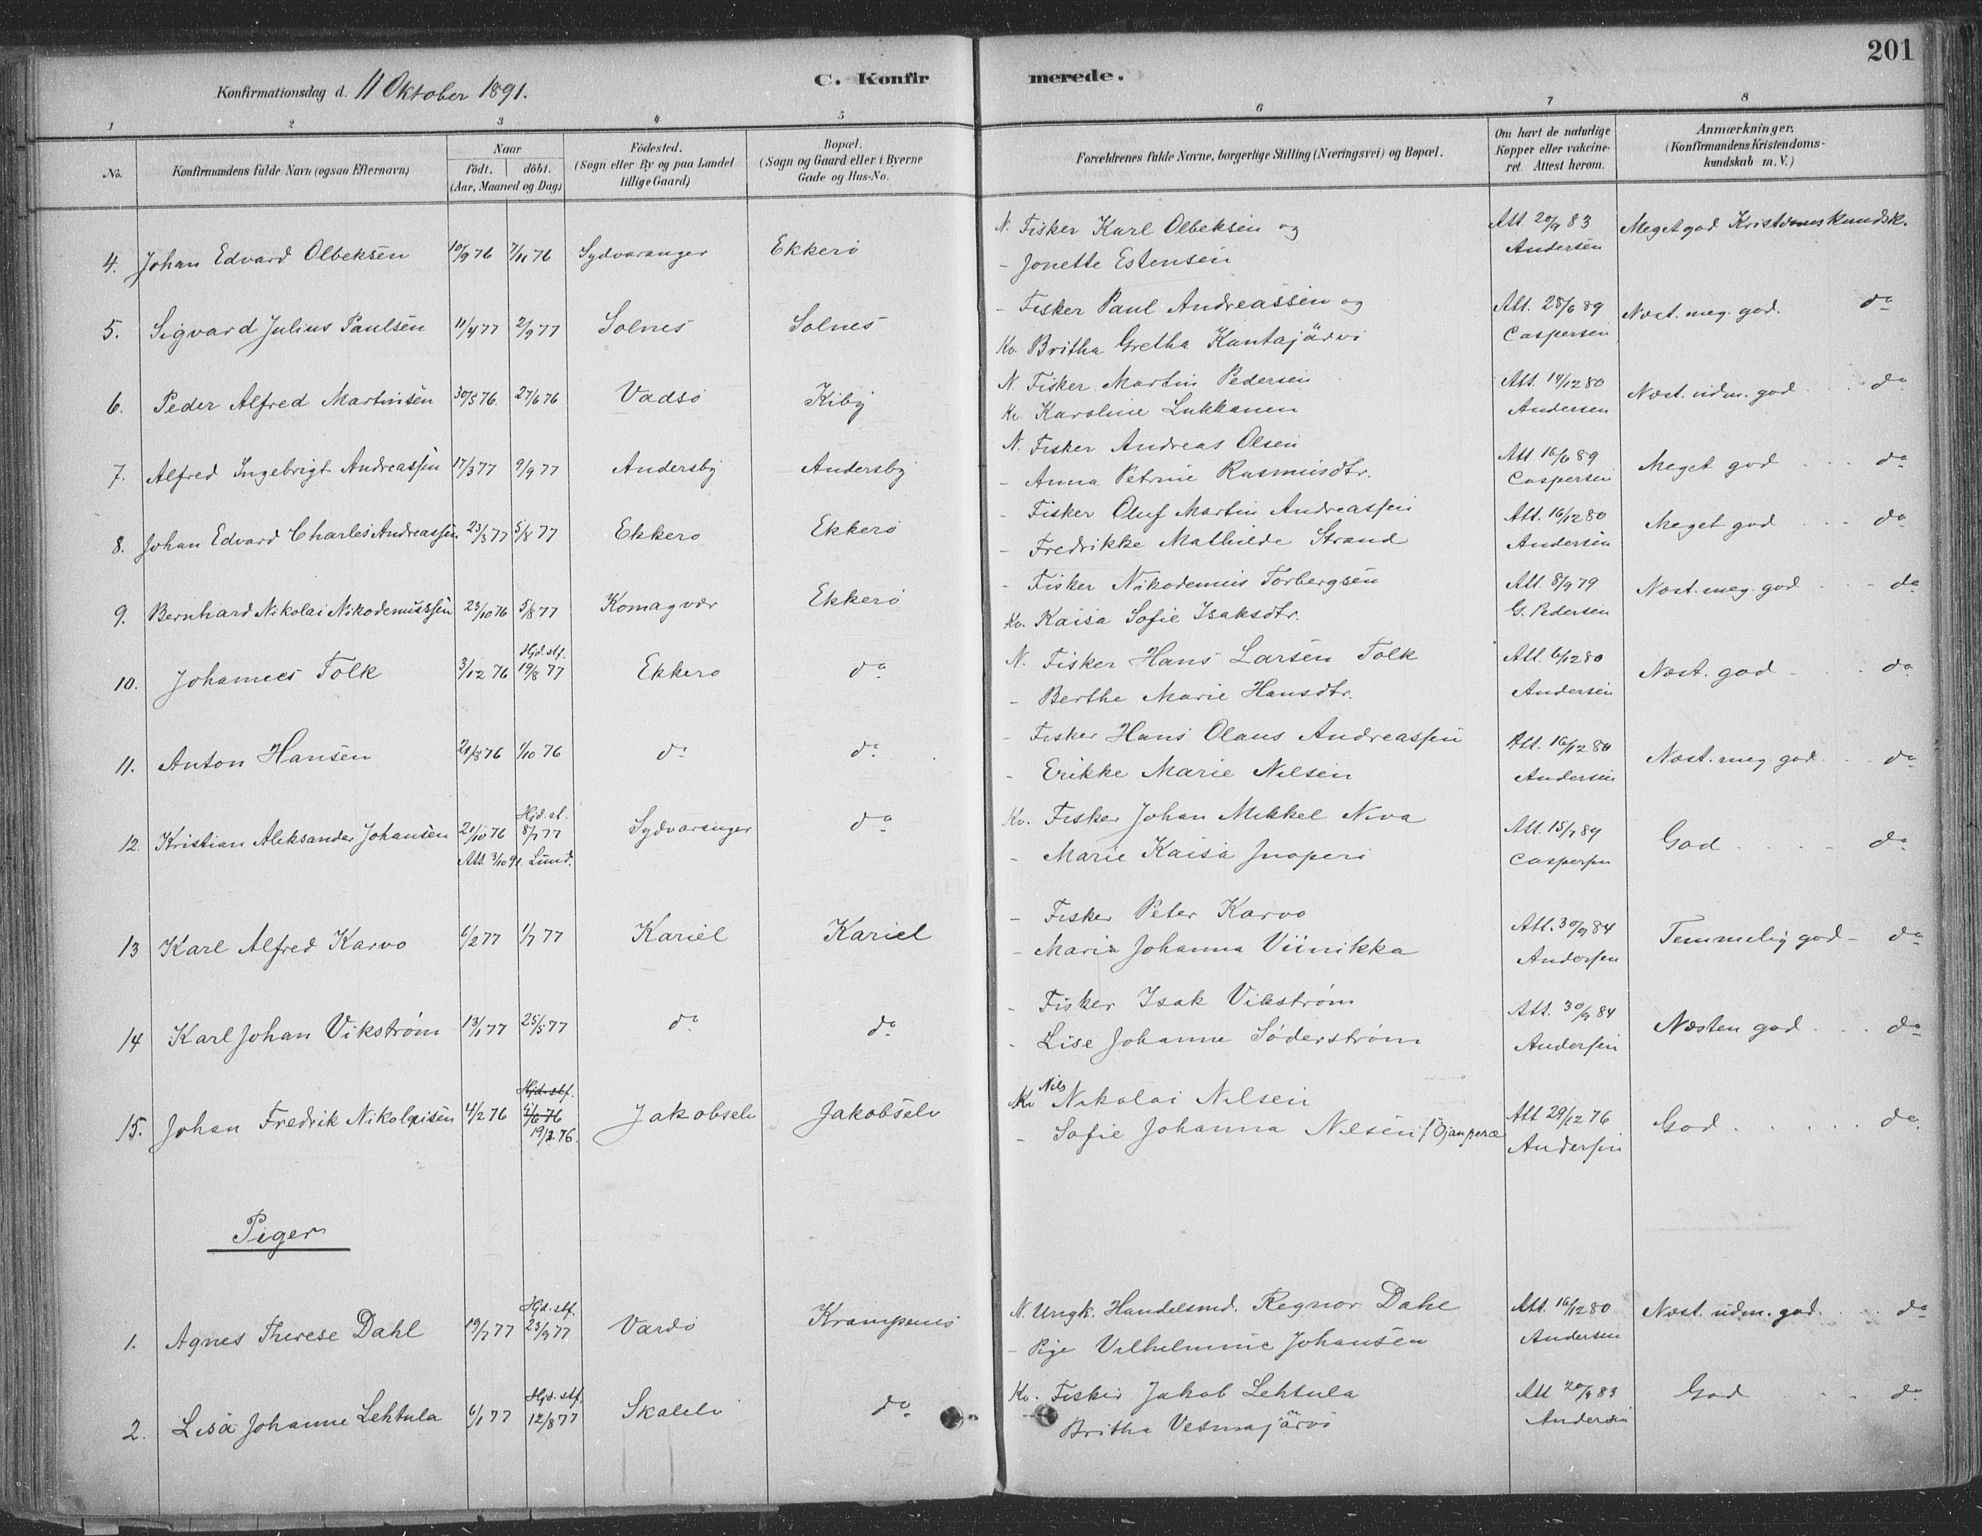 201
C. Konfirmerede.
Konfirmationsdag d. 11 Oktober 1891.
1 2 3 4 5 6 7 8
No. Konfirmandens fulde Navn (ogsaa Efternavn) Naar födt. döbt. (Aar, Maaned og Dag) Födested. (Sogn eller By og paa Landet tillige Gaard) Bopæl. (Sogn og Gaard eller i Byerne Gade og Hus-No. Forældrenes fulde Navne, borgerlige Stilling (Næringsvei) og Bopæl. Om havt de naturlige Kopper eller vakcineret. Attest herom. Anmærkninger. (Konfirmandens Kristendomskundskab m. V.)
N. Fisker Karl Olbeksen og Att. 20/9 83 Meget god Kristdomskundsk.
4. Johan Edvard Olbeksen 10/9 76 7/11 76 Sydvaranger Ekkerö
- Jonette Estensen Andersen
- Fisker Paul Andreassen og Att. 28/6 89
5. Sigvard Julius Paulsen 11/4 77 2/9 77 Solnes Solnes Næst. meg. god. do
Kv. Britha Gretha Kantajärvi Caspersen
N. Fisker Martin Pedersen Att. 14/12 80
6. Peder Alfred Martinsen 30/3 76. 27/6 76 Vadsö Kiby Næst. udm. god do
Kv. Karoline Lukkanen Andersen
N. Fisker Andreas Olsen Att 16/6 89
7. Alfred Ingebrigt Andreassen 17/3 77 9/9 77 Andersby Andersby Meget god do
- Anna Petrine Rasmusdtr. Caspersen
- Fisker Oluf Martin Andreassen Att. 16/12 80
8. Johan Edvard Charles Andreassen 23/3 77 5/8 77 Ekkerö Ekkerö Meget god do
- Fredrikke Mathilde Strand Andersen
- Fisker Nikodemus Torbergsen Att. 8/9 79
9. Bernhard Nikolai Nikodemussen 23/10 76 5/8 77 Komagvær Ekkerö Næst. meg. god do
Kv. Kaisa Sofie Isaksdtr. G. Pedersen
Hjd. stf.
N. Fisker Hans Larsen Folk Att. 6/12 80
10. Johannes Folk 3/12 76 19/8 77 Ekkerö do Næst. god do
- Berthe Marie Hansdtr. Andersen
- Fisker Hans Olaus Andreassen Att. 16/12 80
11. Anton Hansen 21/8 76 1/10 76 do do Næst. meg god do
- Erikke Marie Nilsen Andersen
Hjd. st.
Kv. Fisker Johan Mikkel Niva Att. 15/7 89
12. Kristian Aleksander Johansen 21/10 76 8/7 77 Sydvaranger do God do
Att. 3/10 91. Lund.
- Marie Kaisa Caspersen
- Fisker Peter Karvo Att. 30/9 84
13 Karl Alfred Karvo 6/2 77 1/7 77 Kariel Kariel Temmelig god - do
- Maria Johanna Viinikka Andersen
- Fisker Isak Vikström Att. 30/9 84
14 Karl Johan Vikström 13/1 77 25/5 77 do do Næsten god do
- Lise Johanne Söderström Andersen
Hjd. stf.
Nils
Kv Nikolai Nilsen Att 29/12 76
15. Johan Fredrik Nikolaisen 4/2 76 5/6 76 Jakobselv Jakobselv God do
19/3 76.
- Sofie Johanna Nilsen f. Ojanperæ Andersen
Piger
Hjd. stf.
N. Ungk. Handelsmd. Regnor Dahl Att. 16/12 80 Næst. udm. god. do
1. Agnes Therese Dahl 19/7 77 23/9 77 Vardö Krampenes
- Pige Vilhelmine Johansen Andersen
Hjd. stf.
Kv. Fisker Jakob Lehtula Att 20/9 83 God do
2. Lisa Johanne Lehtula 6/1 77 12/8 77 Skalelv do
Britha Vesmajärvi Andersen